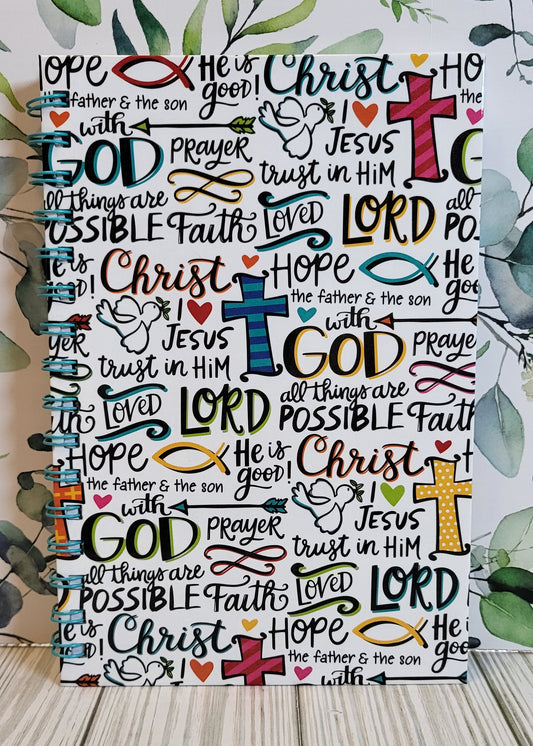 HOPE He is good! Christ HOPE
the father & the son I ♥ JESUS
with GOD PRAYER trust in HiM G
all things are POSSIBLE Faith LOVED LORD all POSS
He is good! Christ HOPE He is good
I ♥ JESUS the father & the son
PRAYER trust in HiM with GOD PRAYER
Faith LOVED LORD all things are POSSIBLE Faith
HOPE He is good! Christ
the father & the son I ♥ JESUS
with GOD PRAYER trust in HiM
all things are POSSIBLE Faith LOVED LORD
He is good! Christ HOPE He is good
I ♥ JESUS the father & the son
with